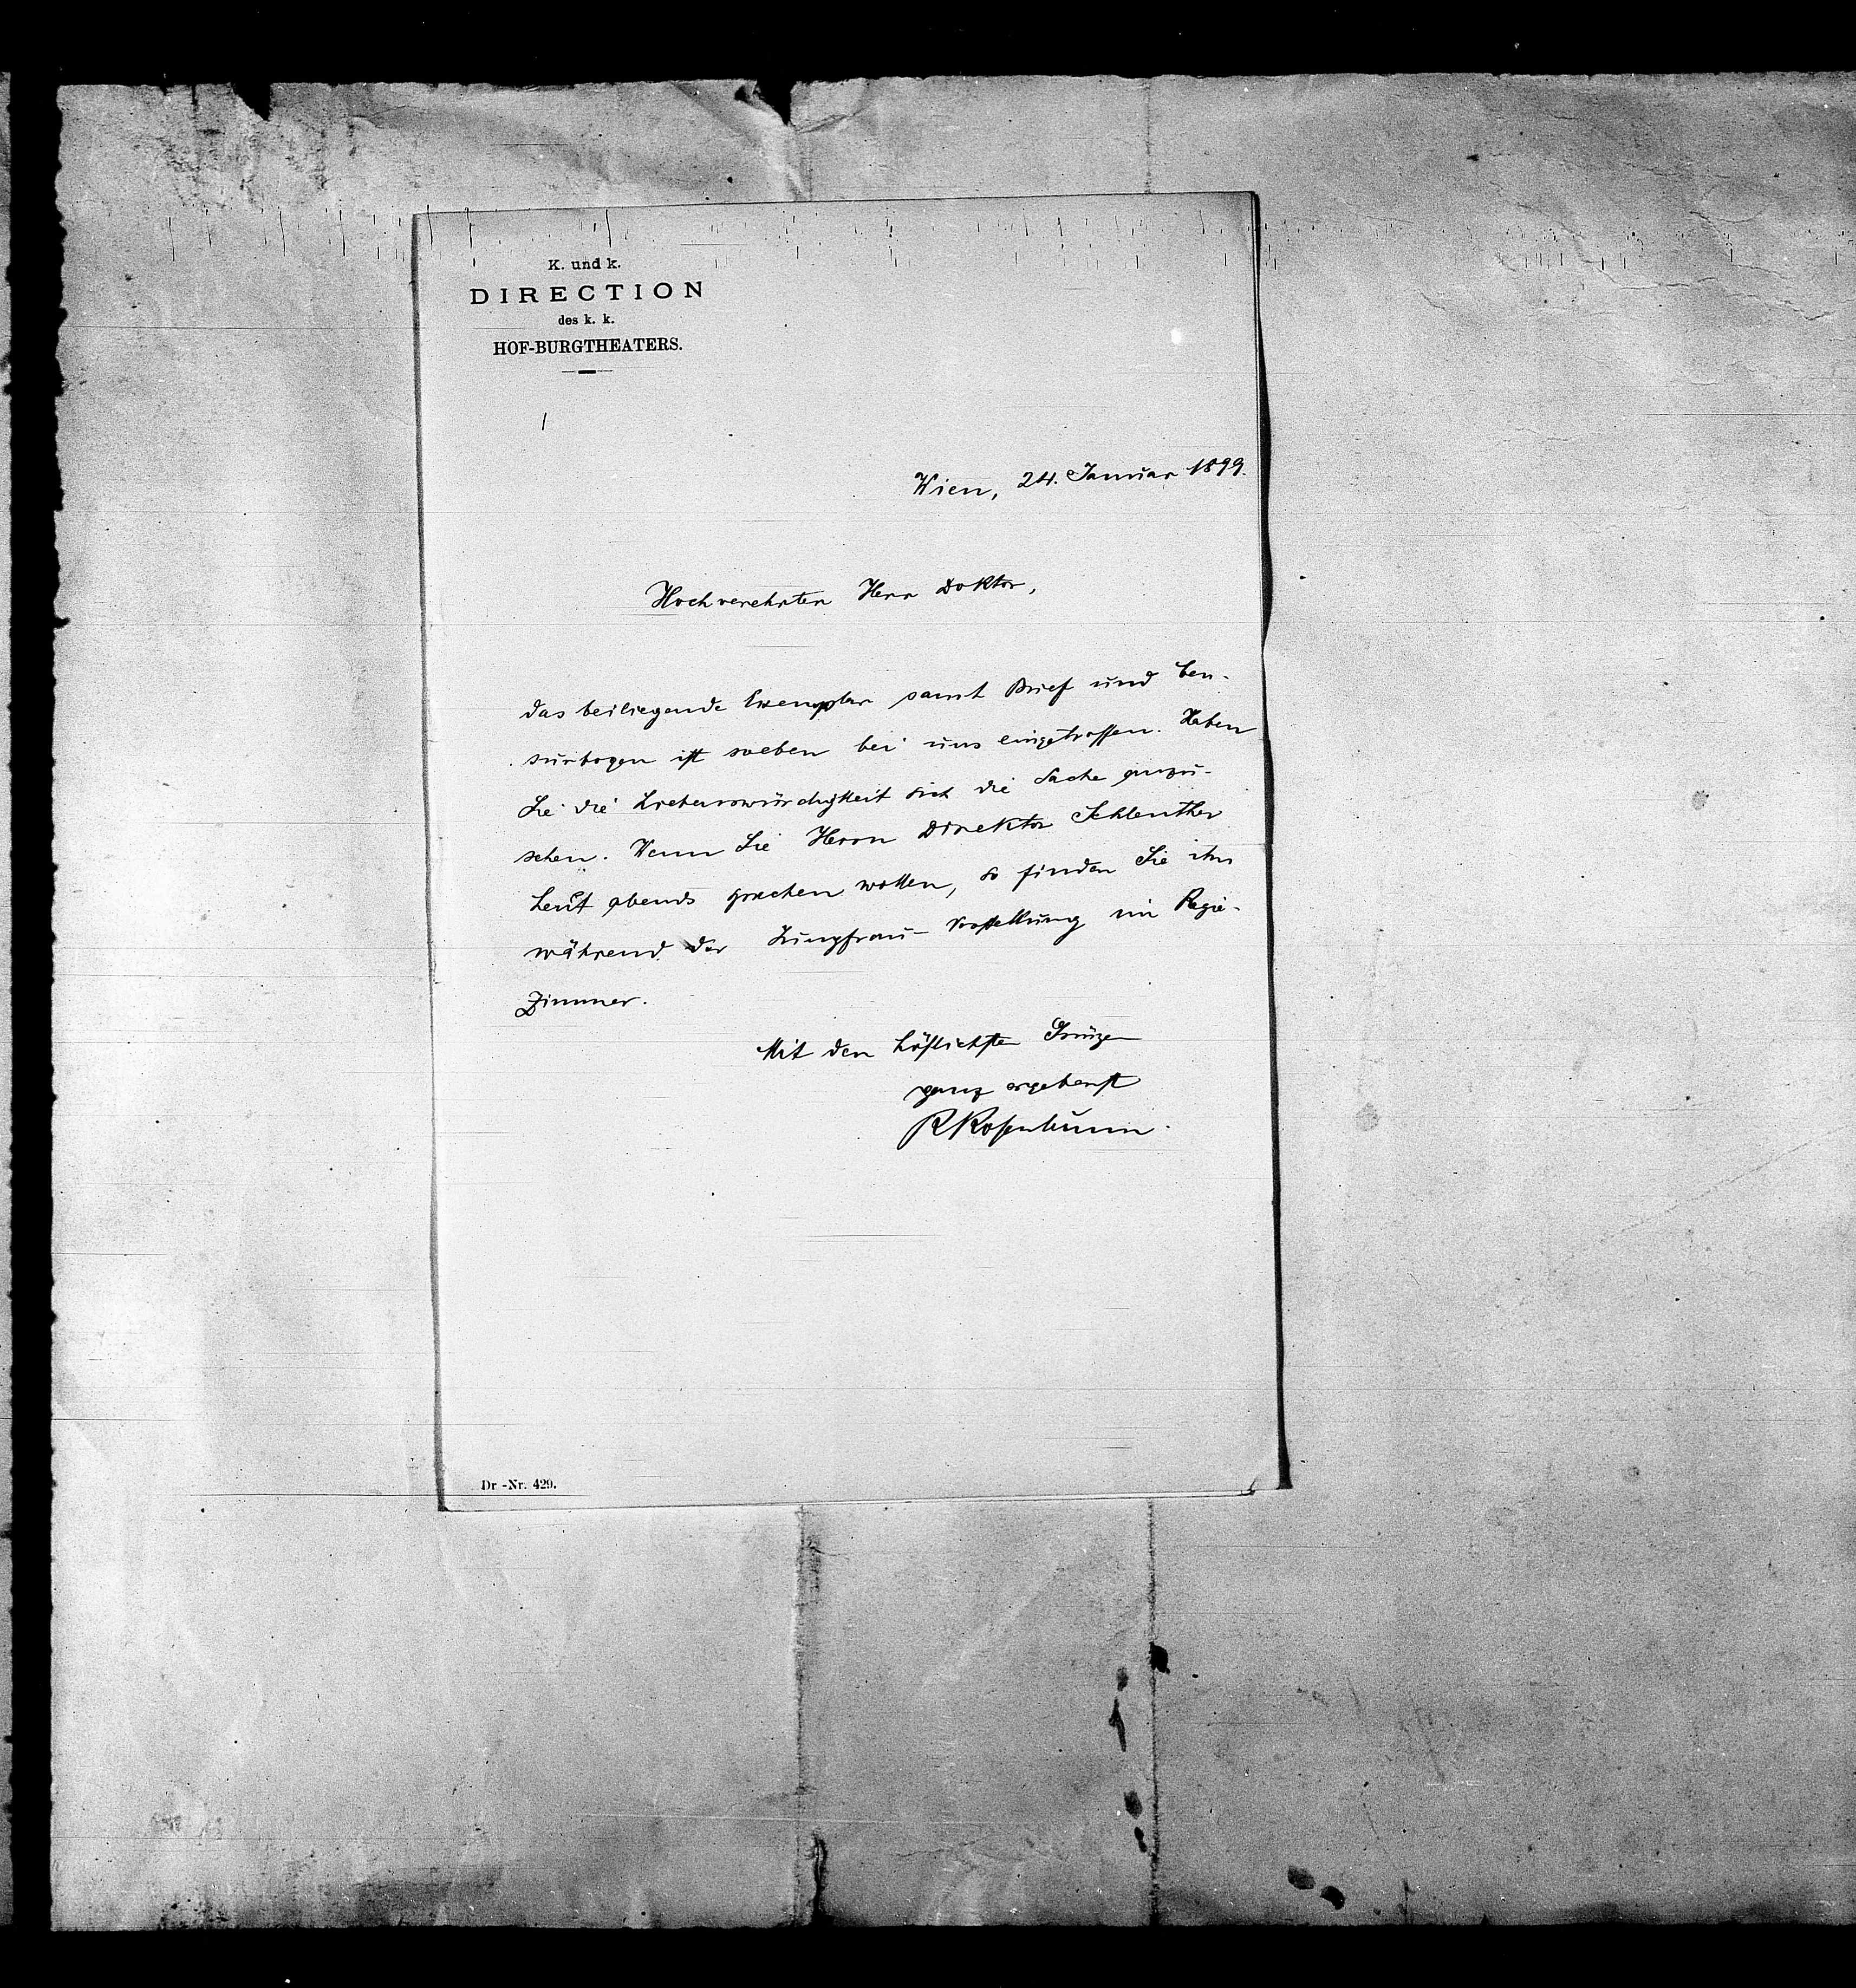 K. und k.
DIRECTION
des k. k.
HOF-BURGTHEATERS.
Wien, 24. Januar 1899.
Hochverehrter Herr Doktor,
das beiliegende Exemplar samt Brief und Cen-
surbogen ist soeben bei uns eingetroffen. Haben
Sie die Liebenswürdigkeit sich die Sache anzu-
sehen. Wenn Sie Herrn Direktor Schlenther
heut abends sprechen wollen, so finden Sie ihn
während der Jungfrau-Vorstellung im Regie-
Zimmer.
Mit den höflichsten Grüßen
ganz ergebenst
RRosenbaum.
Dr-Nr. 429.